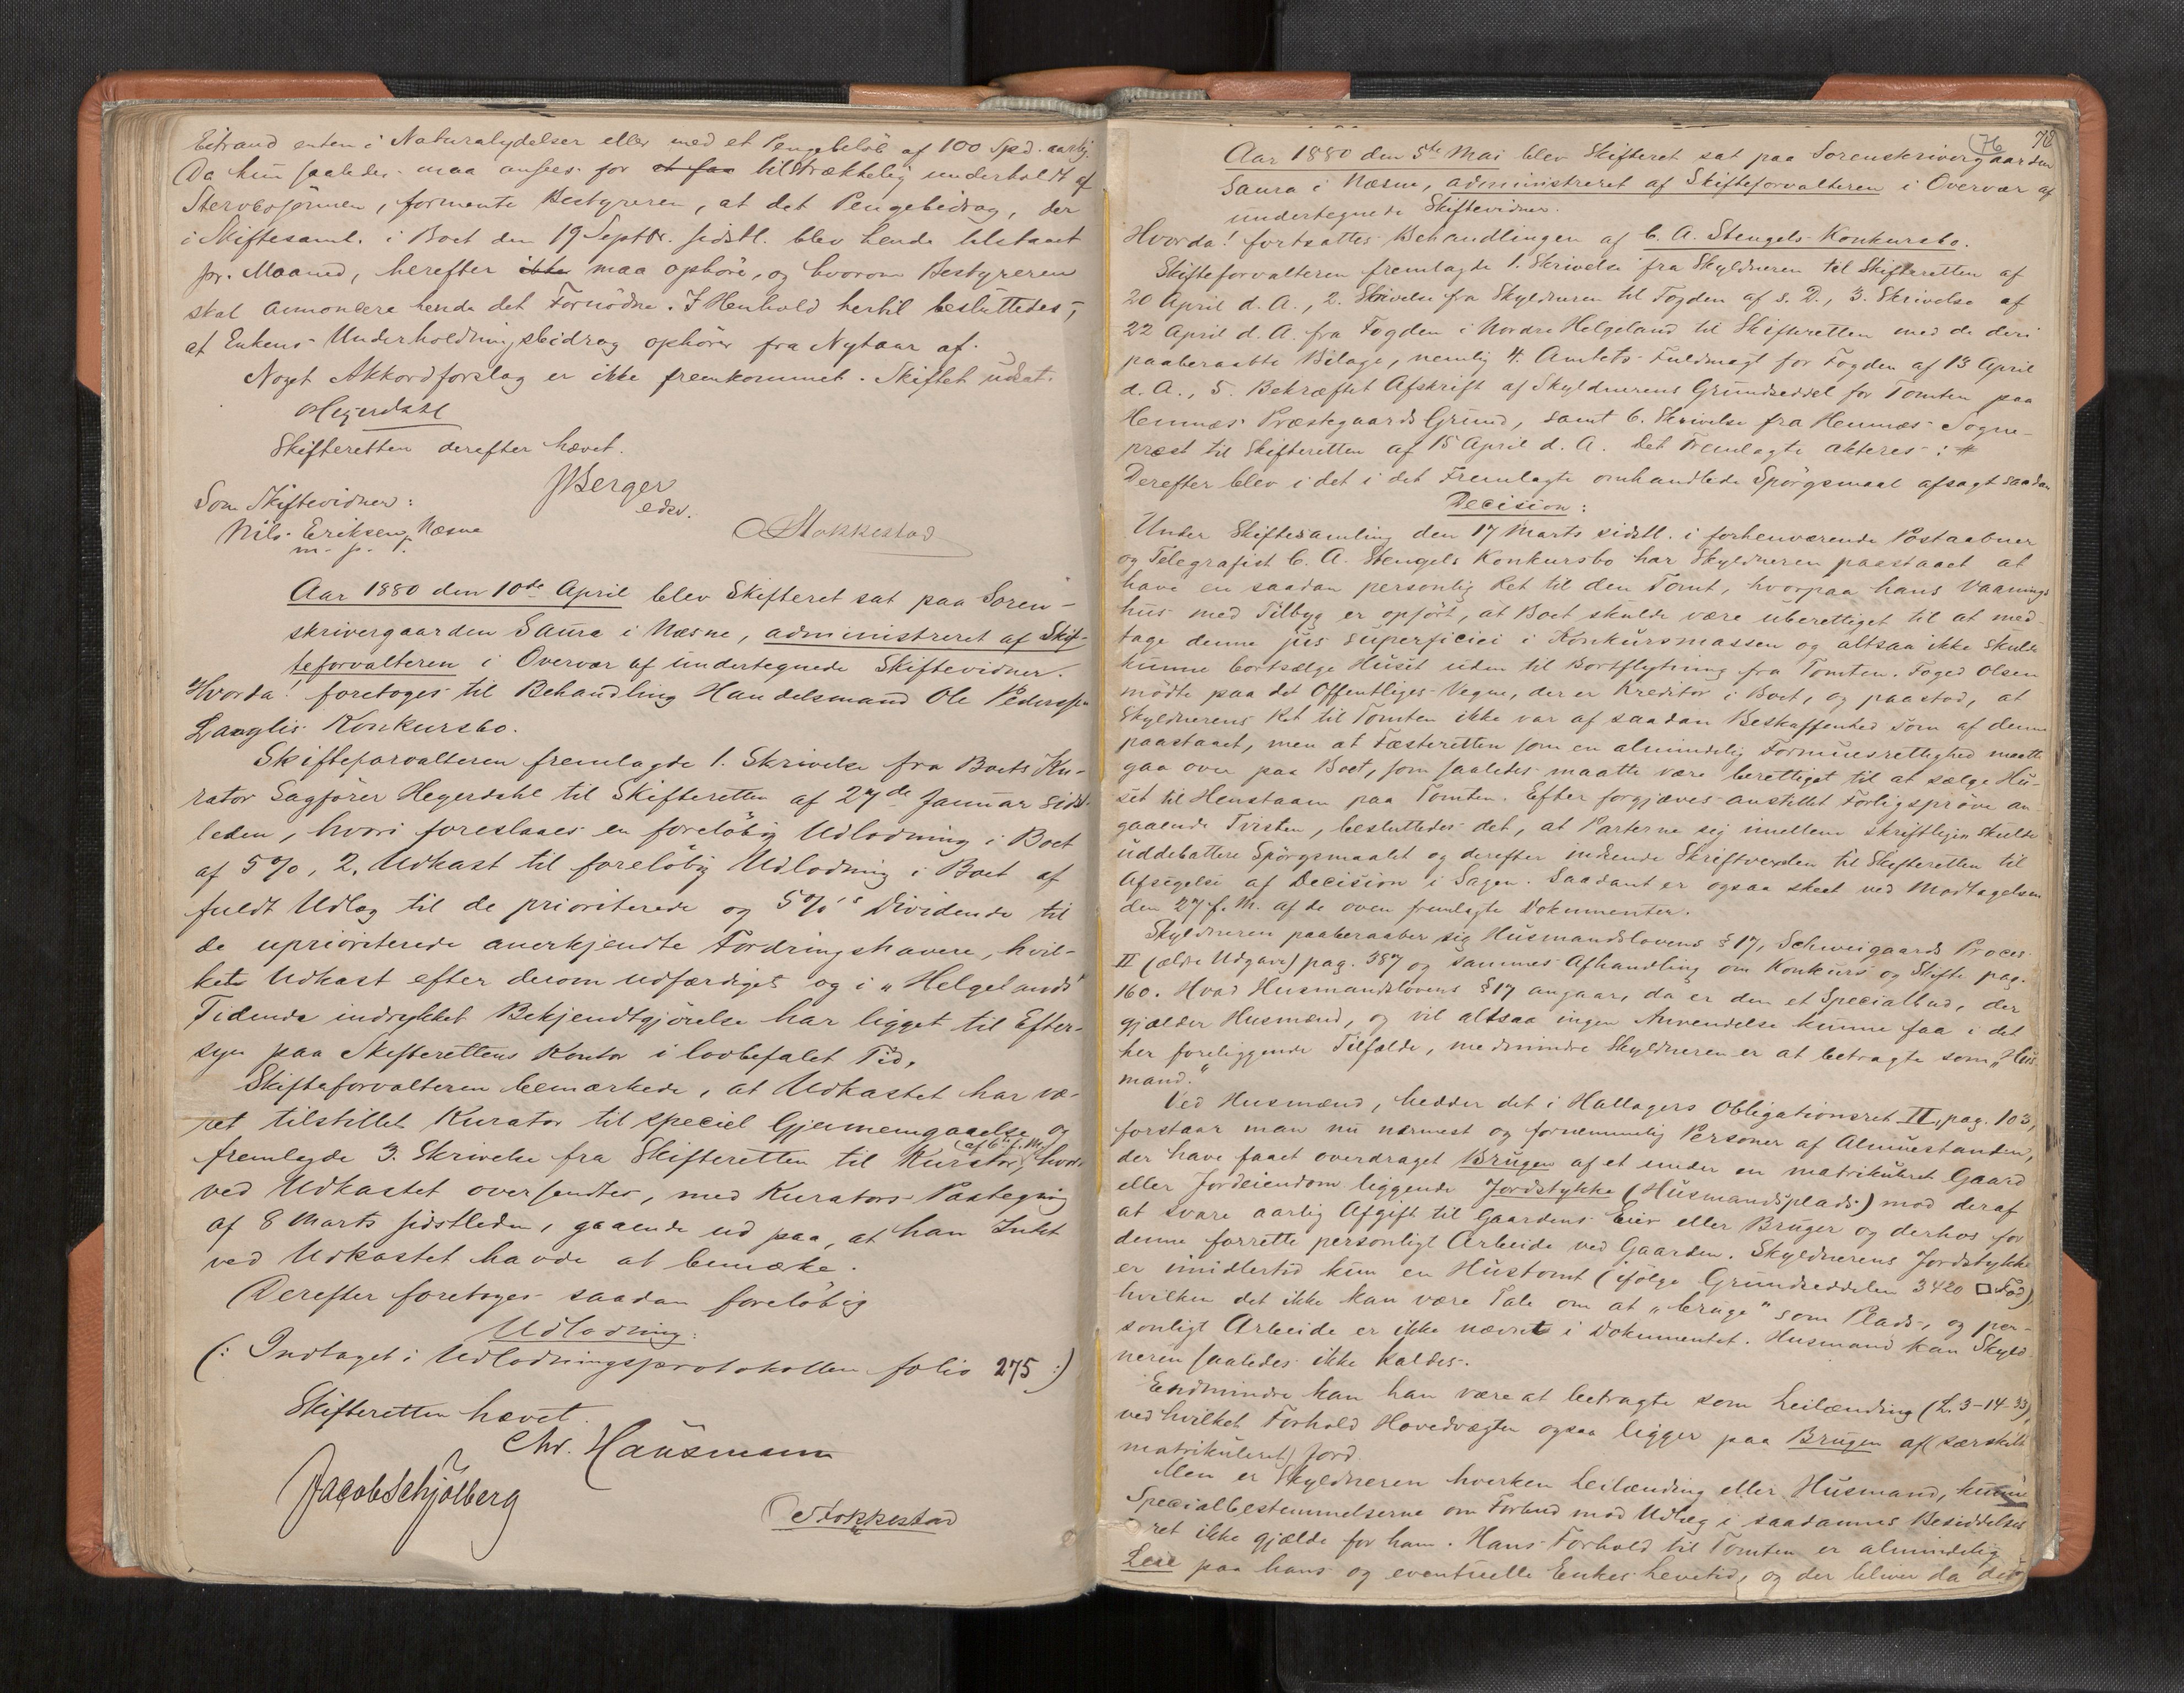 bistand enten i Naturalydelser eller med et Pengebeløb af 100 Spd. aarlig.
Da hun saaledes maa ansees for at faa tilstrækkelig underholdt af
Stervbosønnen, formente Bestyreren, at det Pengebidrag, der
i Skiftesaml. i Boet den 19 Septbr. sidstl. blev hende tilstaaet
pr. Maaned, herefter ikke maa ophøre, og hvorom Bestyreren
skal annoncere hende det Fornødne. I Henhold hertil besluttedes,
at Enkens Underholdningsbidrag ophører fra Nytaar af.
Noget Akkordforslag er ikke fremkommet. Skiftet udsat.
Hegerdahl
Skifteretten derefter hævet.
Som Skiftevidner:
JBerger
edsv.
Nils Eriksen, Næsne
m. p. P.
Stokkestad
Aar 1880 den 10de April blev Skifteret sat paa Soren-
skrivergaarden Saura i Næsne, administreret af Skif-
teforvalteren i Overvær af undertegnede Skiftevidner.
Hvorda! foretoges til Behandling Handelsmand Ole Pedersen
Langlis Konkursbo.
Skifteforvalteren fremlagde 1. Skrivelse fra Boets Ku-
rator Sagfører Hegerdahl til Skifteretten af 27de Januar sidst-
leden, hvori foreslaaes en foreløbig Udlodning i Boet
af 5%, 2. Udkast til foreløbig Udlodning i Boet af
fuldt Udlæg til de prioriterede og 5%'s Dividende til
de uprioriterede anerkjendte Fordringshavere, hvil-
ket Udkast efter derom udfærdiget og i "Helgelands
Tidende indrykket Bekjendtgjørelse har ligget til Efter-
syn paa Skifterettens Kontor i lovbefalet Tid.
Skifteforvalteren bemærkede, at Udkastet har væ-
ret tilstillet Kurator til speciel Gjennemgaaelse og
fremlagde 3. Skrivelse fra Skifteretten til Kurator (af 6te f. M.) hvor-
ved Udkastet oversendtes, med Kurators Paategning
af 8 Marts sidstleden, gaaende ud paa, at han Intet
ved Udkastet havde at bemærke.
Derefter foretoges saadan foreløbig
Udlodning:
(: Indtaget i Udlodningsprotokollen folio 275 :)
Skifteretten hævet.
Chr. Hausmann
Jacob Schjølberg
Stokkestad
76 78
Aar 1880 den 5te Mai blev Skifteret sat paa Sorenskrivergaarden
Saura i Næsne, administreret af Skifteforvalteren i Overvær af
undertegnede Skiftevidner.
Hvorda! fortsattes Behandlingen af C. A. Stengels Konkursbo.
Skifteforvalteren fremlagte 1. Skrivelse fra Skyldneren til Skifteretten af
20 April d. A., 2. Skrivelse fra Skyldneren til Fogden af s. D., 3. Skrivelse af
22 April d. A. fra Fogden i Nordre Helgeland til Skifteretten med de deri
paaberaabte Bilage, nemlig 4. Amtets Fuldmagt for Fogden af 13 April
d. A., 5. Bekræftet Afskrift af Skyldnerens Grundseddel for Tomten paa
Hemnæs Præstegaards Grund, samt 6. Skrivelse fra Hemnæs Sogne-
præst til Skifteretten af 15 April d. A. Det Fremlagte akteres: #
Derefter blev i det i det Fremlagte omhandlede Spørgsmaal afsagt saadan
Decision:
Under Skiftesamling den 17 Marts sidstl. i forhenværende Postaabner
og Telegrafist C. A. Stengels Konkursbo har Skyldneren paastaaet at
have en saadan personlig Ret til den Tomt, hvorpaa hans Vaanings-
hus med Tilbyg er opført, at Boet skulde være uberettiget til at med-
tage denne jus superficiei i Konkursmassen og altsaa ikke skulde
kunne bortsælge Huset uden til Bortflytning fra Tomten. Foged Olsen
mødte paa det Offentliges Vegne, der er Kreditor i Boet, og paastod, at
Skyldnerens Ret til Tomten ikke var af saadan Beskaffenhed som af denne
paastaaet, men at Fæsteretten som en almindelig Formuesrettighed maatte
gaa over paa Boet, som saaledes maatte være berettiget til at sælge Hu-
set til Henstaaen paa Tomten. Efter forgjæves anstillet Forligsprøve an-
gaaende Tvisten, besluttedes det, at Parterne sig imellem skriftligen skulde
uddebattere Spørgsmaalet og derefter indsende Skriftvexelen til Skifteretten til
Afsigelse af Decision i Sagen. Saadant er ogsaa skeet ved Modtagelsen
den 27 f. M. af de oven fremlagte Dokumenter.
Skyldneren paaberaaber sig Husmandslovens § 17, Schweigaards Proces
II (ældre Udgave) pag. 387 og sammes Afhandling om Konkurs og Skifte pag.
160. Hvad Husmandslovens § 17 angaar, da er den et Specialbud, der
gjælder Husmænd, og vil altsaa ingen Anvendelse kunne faa i det
her foreliggende Tilfælde, medmindre Skyldneren er at betragte som "Hus-
mand."
Ved Husmænd, hedder det i Hallagers Obligationsret II, pag. 103,
forstaar man nu nærmest og fornemmelig Personer af Almuestanden,
der have faaet overdraget Brugen af et under en matrikuleret Gaard
eller Jordeiendom liggende Jordstykke (Husmandsplads) mod deraf
at svare aarlig Afgift til Gaardens Eier eller Bruger og derhos for
denne forrette personligt Arbeide ved Gaarden. Skyldnerens Jordstykke
er imidlertid kun en Hustomt (ifølge Grundseddelen 3420 □ Fod),
hvilken det ikke kan være Tale om at "bruge" som Plads, og per-
sonligt Arbeide er ikke nævnt i Dokumentet. Husmand kan Skyld-
neren saaledes ikke kaldes.
Endmindre kan han være at betragte som Leilænding (L. 3-14-33),
ved hvilket Forhold Hovedvægten ogsaa ligger paa Brugen af (særskilt
matrikuleret) Jord.
Men er Skyldneren hverken Leilænding eller Husmand, kunne
Specialbestemmelserne om Forbud mod Udlæg i saadannes Besiddelses-
ret ikke gjælde for ham. Hans Forhold til Tomten er almindelig
Leie paa hans og eventuelle Enkes Levetid, og der bliver da